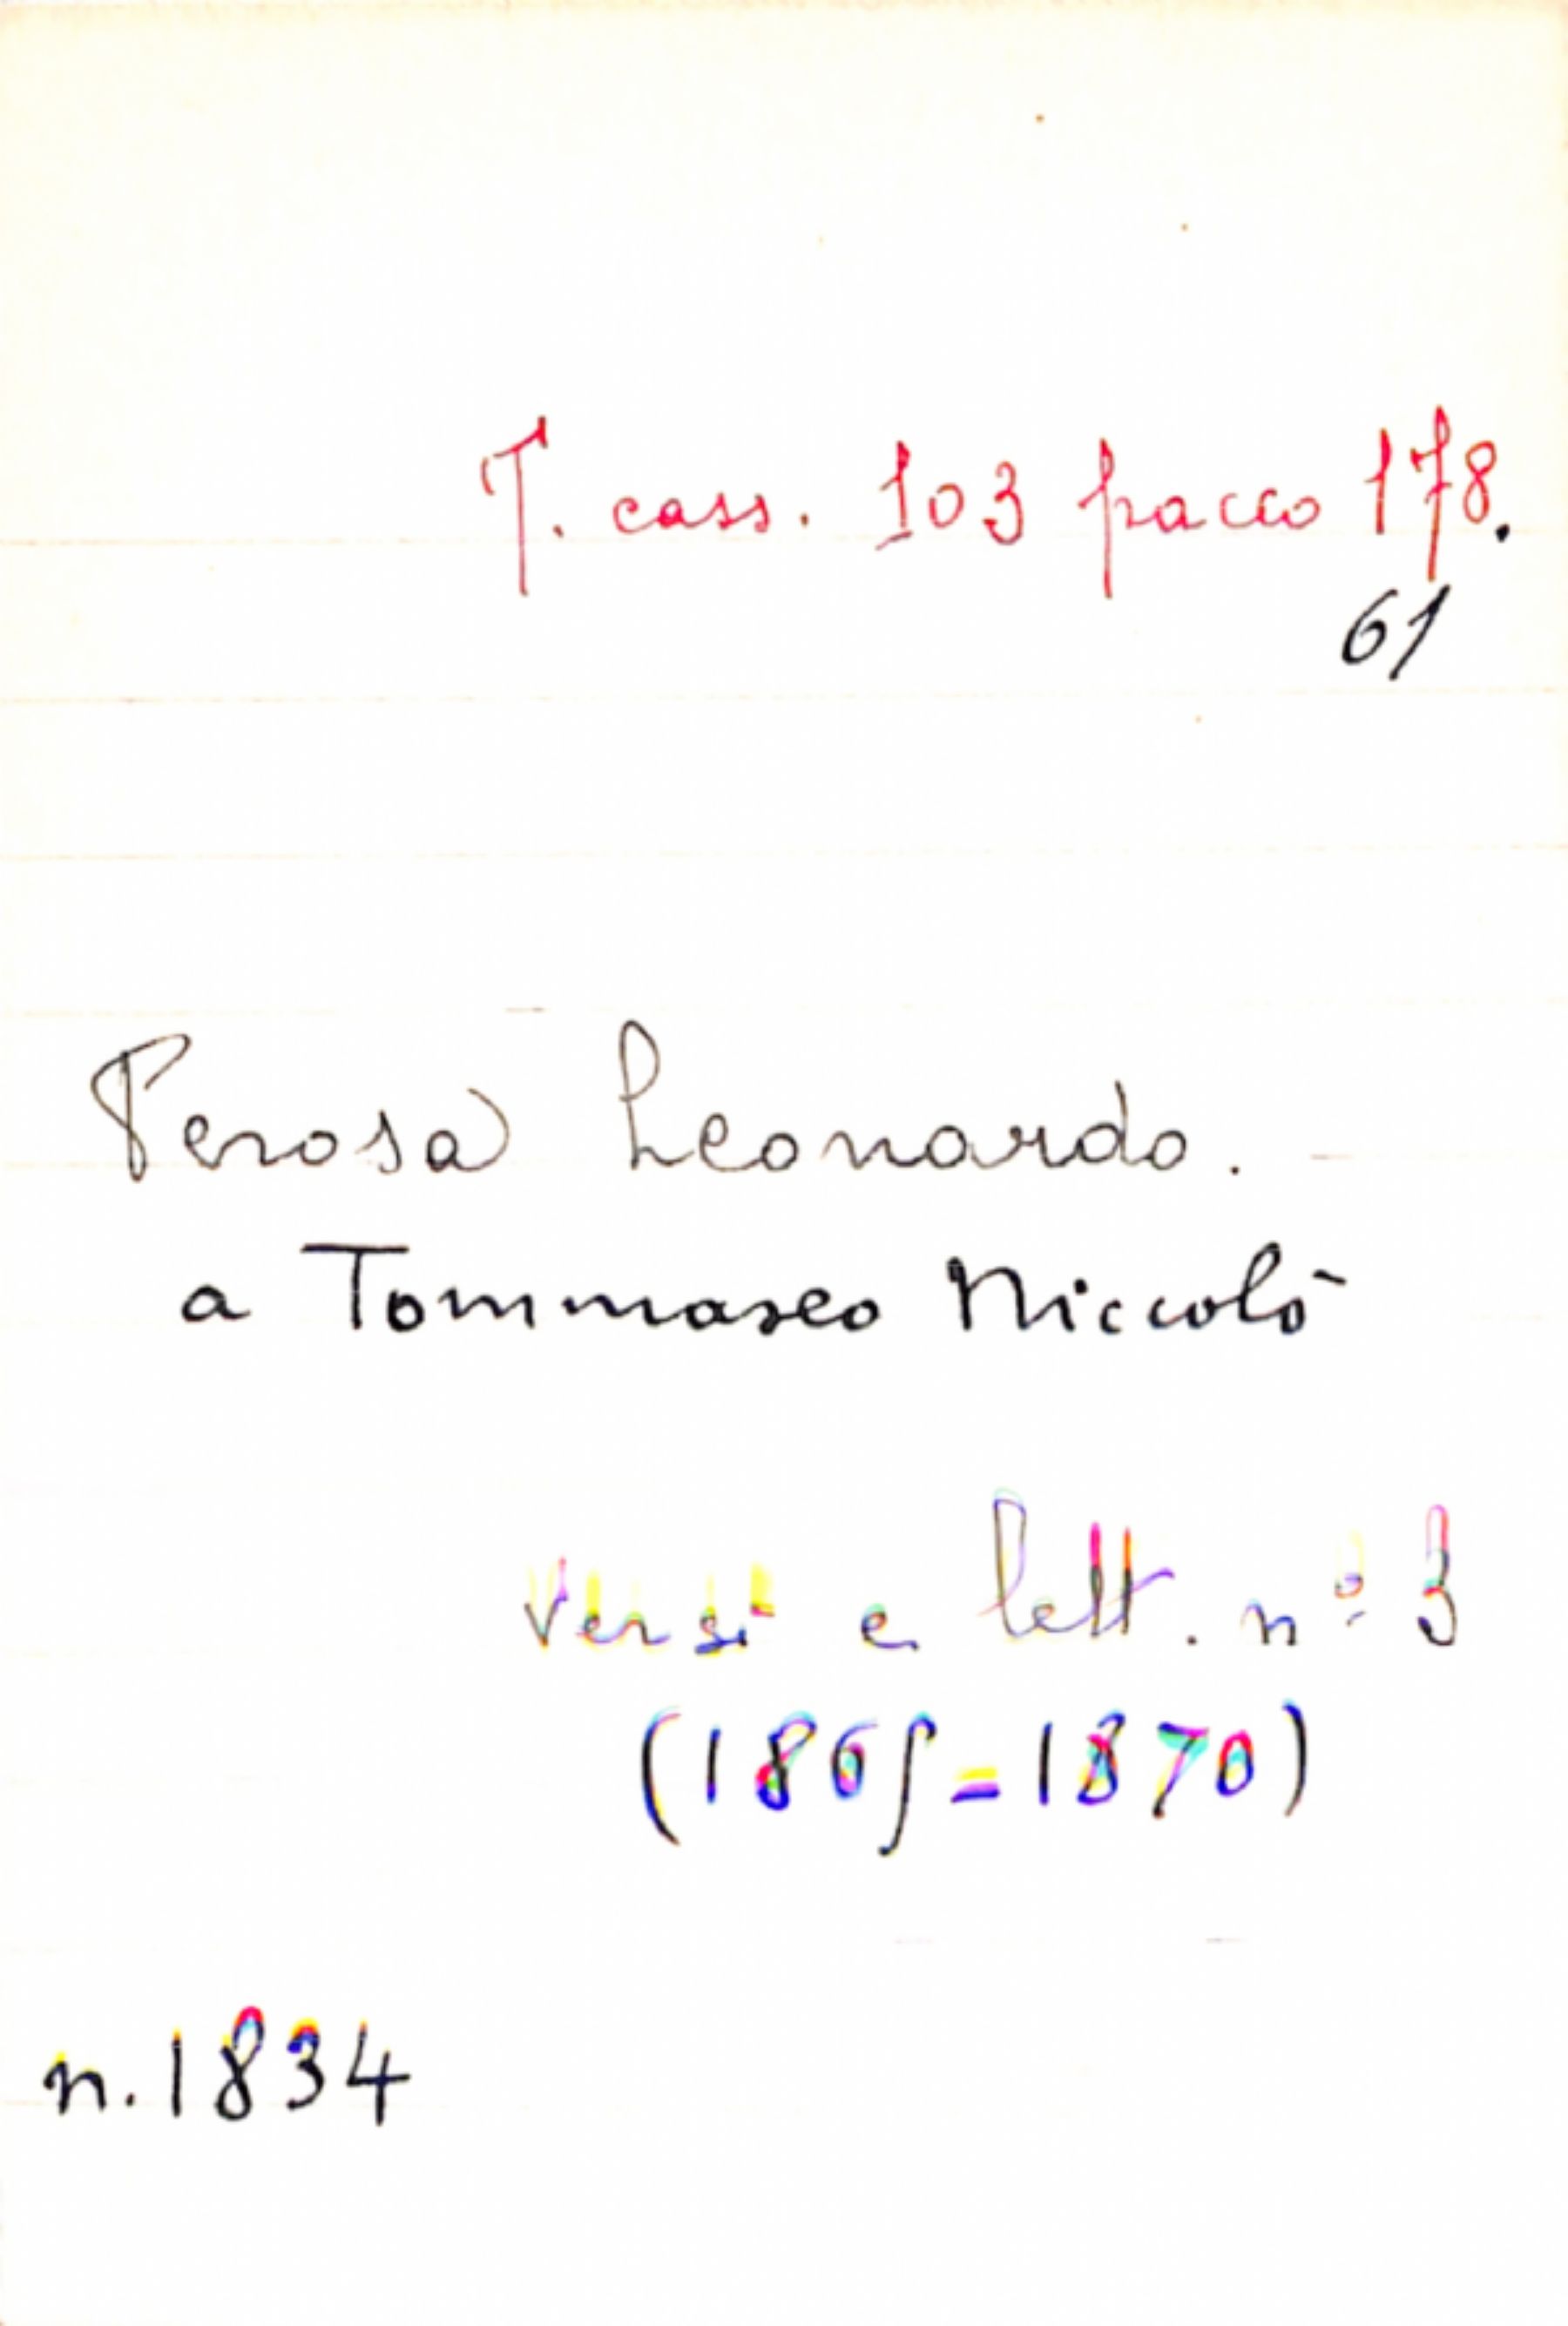 T. cass. 103 pacco 178.
61
Perosa Leonardo.
a Tommaseo Niccolò
versi e lett. n° 3
(1865=1870)
n. 1834